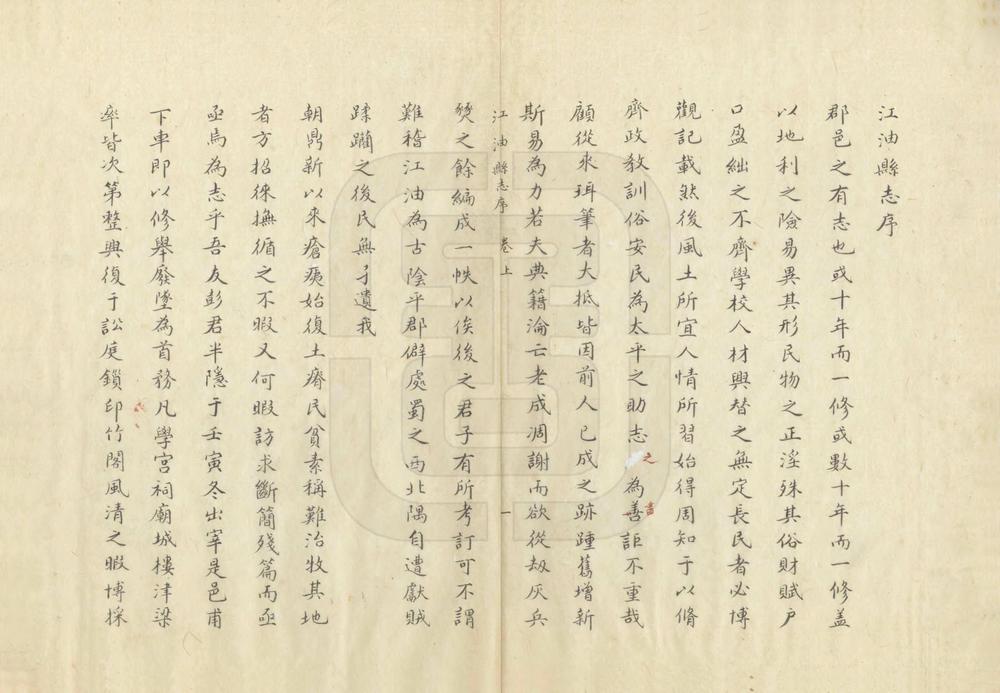 江油縣志序
郡邑之有志也或十年而一修或數十年而一修盖
以地利之險易異其形民物之正淫殊其俗財賦戶
口盈絀之不齊學校人材興替之無定長民者必博
觀記載然後風土所宜人情所習始得周知于以脩
齊政敎訓俗安民為太平之助志之為書善詎不重哉
顧從來珥筆者大抵皆因前人已成之跡踵舊增新
斯易為力若夫典籍淪亡老成凋謝而欲從刼灰兵
江油縣志序 卷上 一
燹之餘編成一帙以俟後之君子有所考訂可不謂
難稽江油為古陰平郡僻處蜀之西北隅自遭獻賊
蹂躪之後民無孑遺我
朝鼎新以來瘡痍始復土瘠民貧素稱難治牧其地
者方招徠撫循之不暇又何暇訪求斷簡殘篇而亟
亟焉為志乎吾友彭君半隱于壬寅冬出宰是邑甫
下車即以修舉廢墜為首務凡學宮祠廟城樓津梁
率皆次第整興復于訟庭鎖印竹閣風清之暇博採